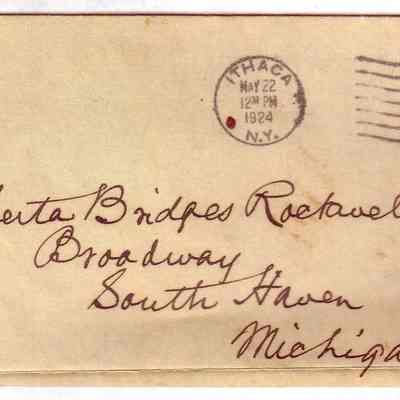 ITHACA
MAY 22
12 M PM
1924
N.Y.
erta Bridges Rockwel
Broadway
South Haven
Michiga